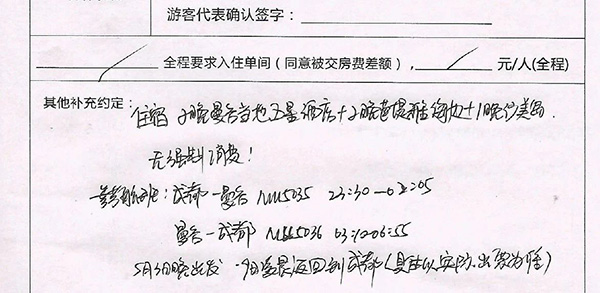 游客代表确认签字：
全程要求入住单间（同意被交房费差额），元/人(全程)
其他补充约定：住宿 2晚曼谷当地五星酒店+2晚芭提雅海边+1晚沙美岛
无强制消费！
参考航班：成都—曼谷 5035 23:30—02:05
曼谷—成都 5036 06:55
5月3日晚出发 9日凌晨返回到成都（具体以实际出票为准）